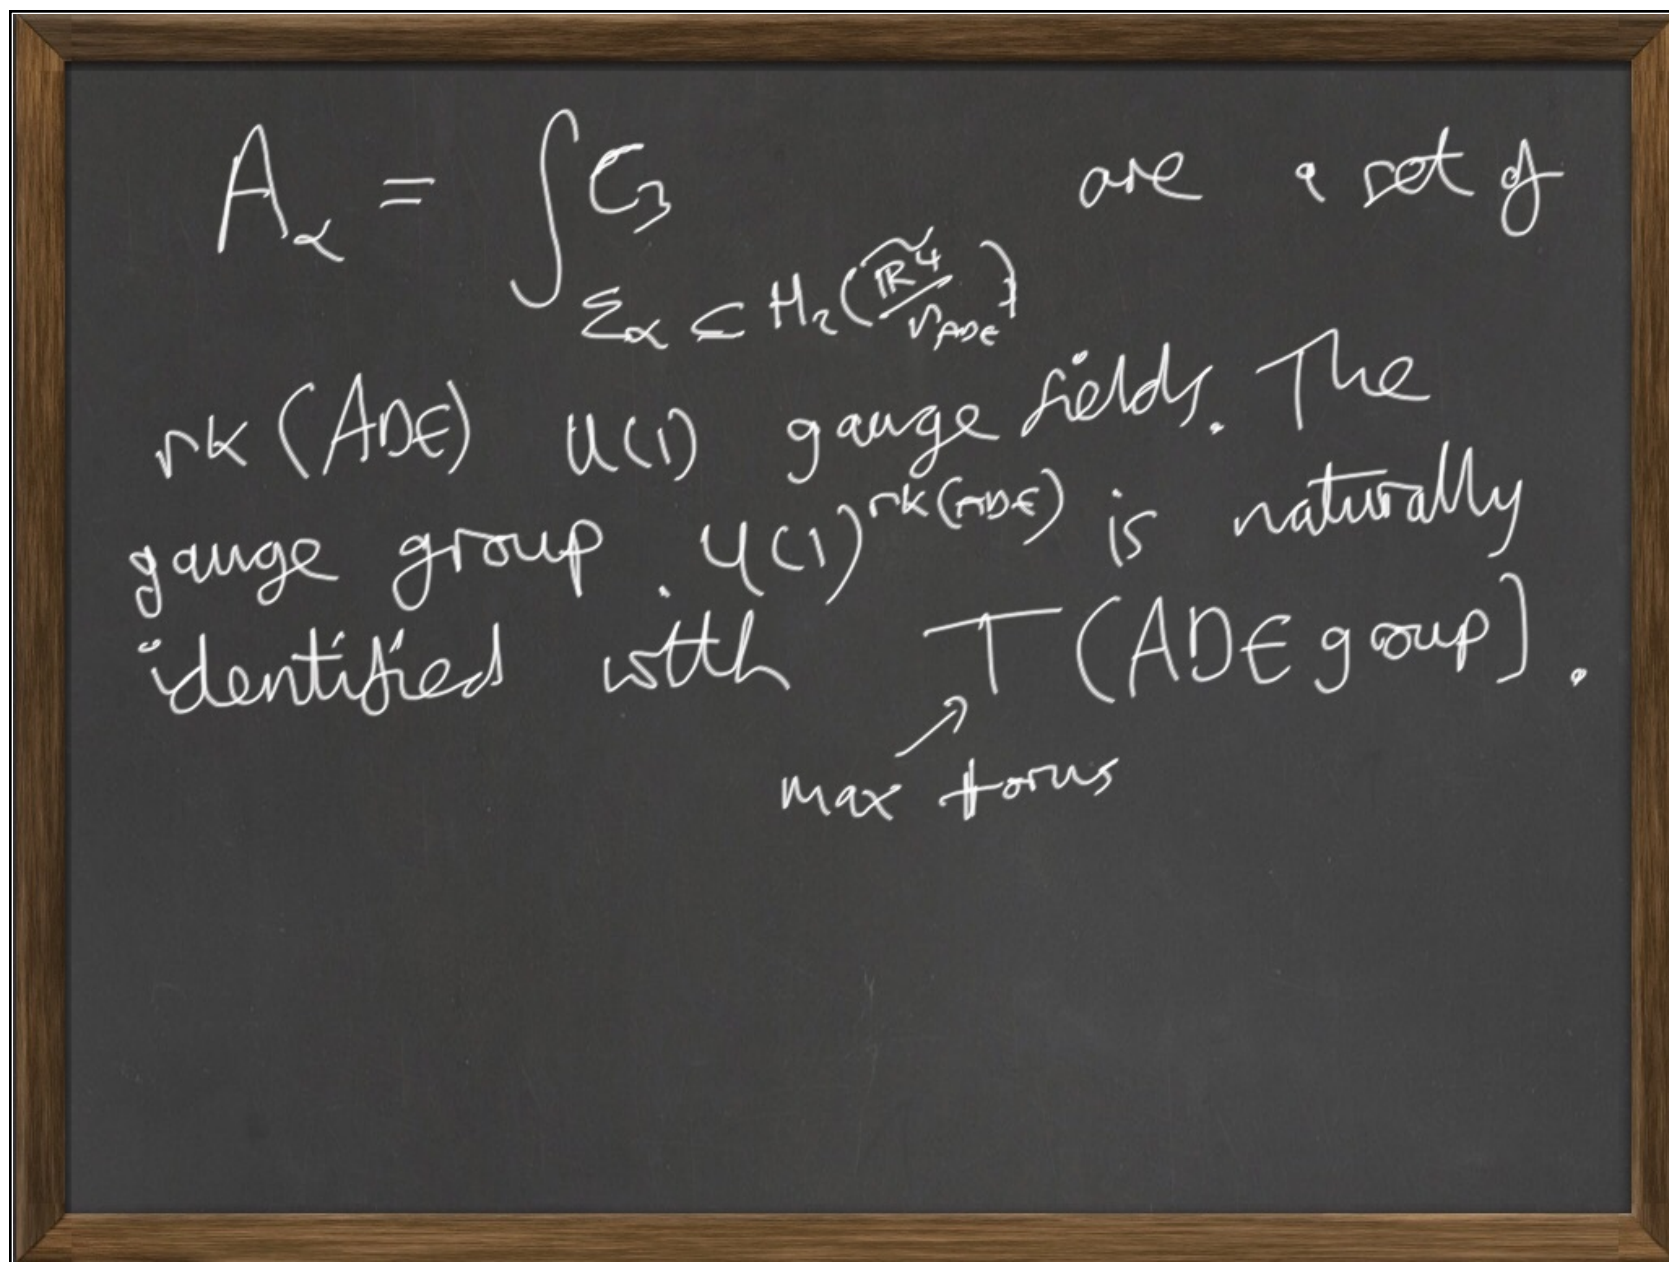 A_α = ∫ C_3 are a set of
Σ_α ⊆ H_2(\widetilde{ℝ^4/Γ_{ADE}})
rk (ADE) U(1) gauge fields. The
gauge group . U(1)^{rk(ADE)} is naturally
identified with T (ADE group) .
max torus